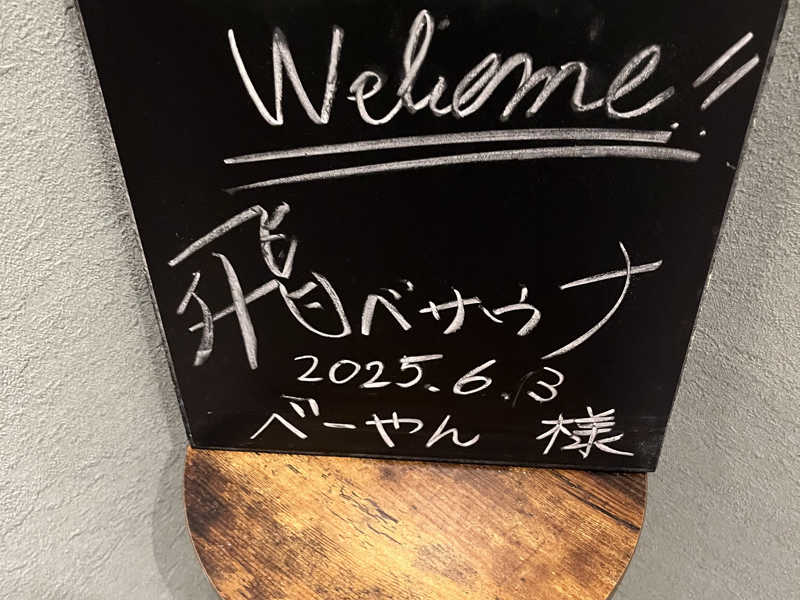 Welcome!!
飛べサウナ
2025.6.3
べーやん 様